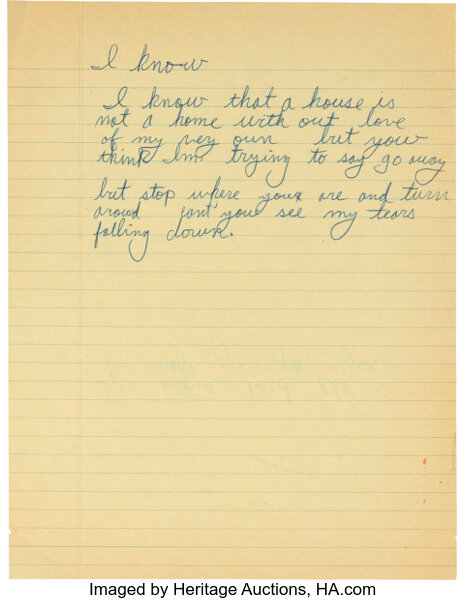 I know
I know that a house is
not a home with out love
of my very own but you
think Im trying to say go away
but stop where youx are and turn
aroud cant you see my tears
falling down.
Imaged by Heritage Auctions, HA.com